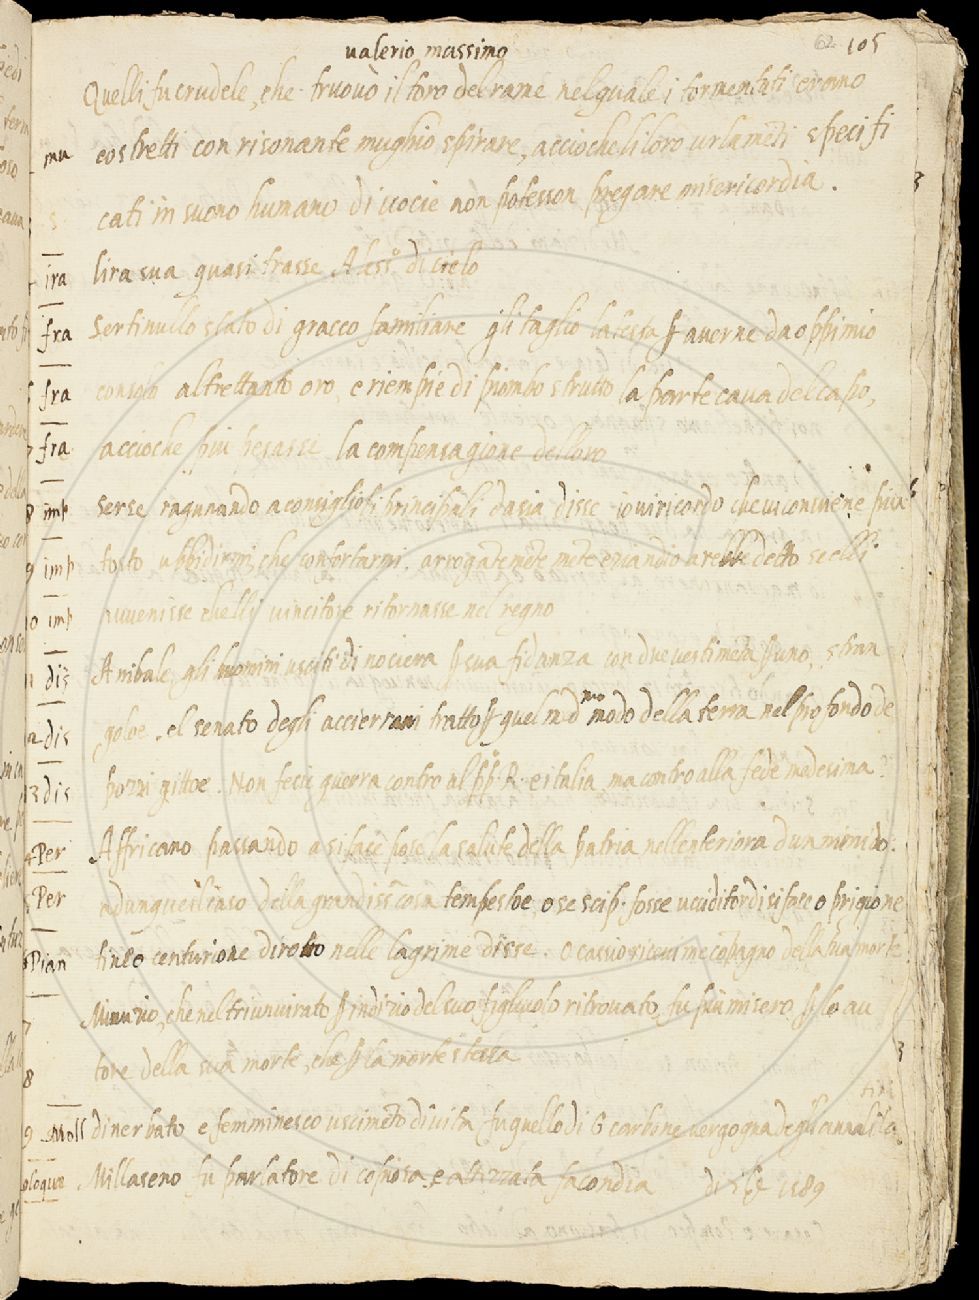 valerio massimo
62 105
Quelli fu crudele, che truovò il toro del rame nel quale i tormentati erono
mu costretti con risonante mughio spirare, accioche li loro urlamēti specifi
cati in suono humano di vocie non potesson pregare misericordia.
ira lira sua quasi trasse Aless.º di cielo
fra Sertinullo stato di gracco familiare gli taglio la testa ꝑ averne da oppimio
fra consolo altrettanto oro, e riempie di piombo strutto la parte cava del capo,
fra accioche piu pesassi la compensagione delloro
imp Serse ragunando a consiglio li principali dasia disse io vi ricordo che vi conviene piu
imp tosto ubbidirmi, che confortarmi. arrogātemēte
imp avvenisse chelli vincitore ritornasse nel regno
dis Anibale, gli huomini usciti di nociera ꝑ sua fidanza con due vestimēta ꝑ uno, stran
dis goloe. el senato degli accierrani tratto ꝑ quel md.mo modo della terra nel profondo de
dis pozzi gittoe. Non fecie guerra contro al pp.º R. e italia, ma contro alla fede medesima
Per Affricano passando a siface pose la salute della patria nellenteriora dun nimido.
Per adunque il caso della grandiss. cosa tempestoe, o se scip. fosse ucciditor di siface o prigione
Pian tinio centurione dirotto nelle lagrime disse. O cassio ricevi me cōpagno della tua morte
7 che nel triunvirato ꝑ indizio del suo figliuolo ritrovato, fu piu misero ꝑ lo au
8 tore della sua morte, che ꝑ la morte stessa
9 Moll di nerbato e femminesco uscimēto di vita fu quello di G carbone vergogna degli annali
eloque Millaseno fu parlatore di copiosa, e attizzata facondia 1589